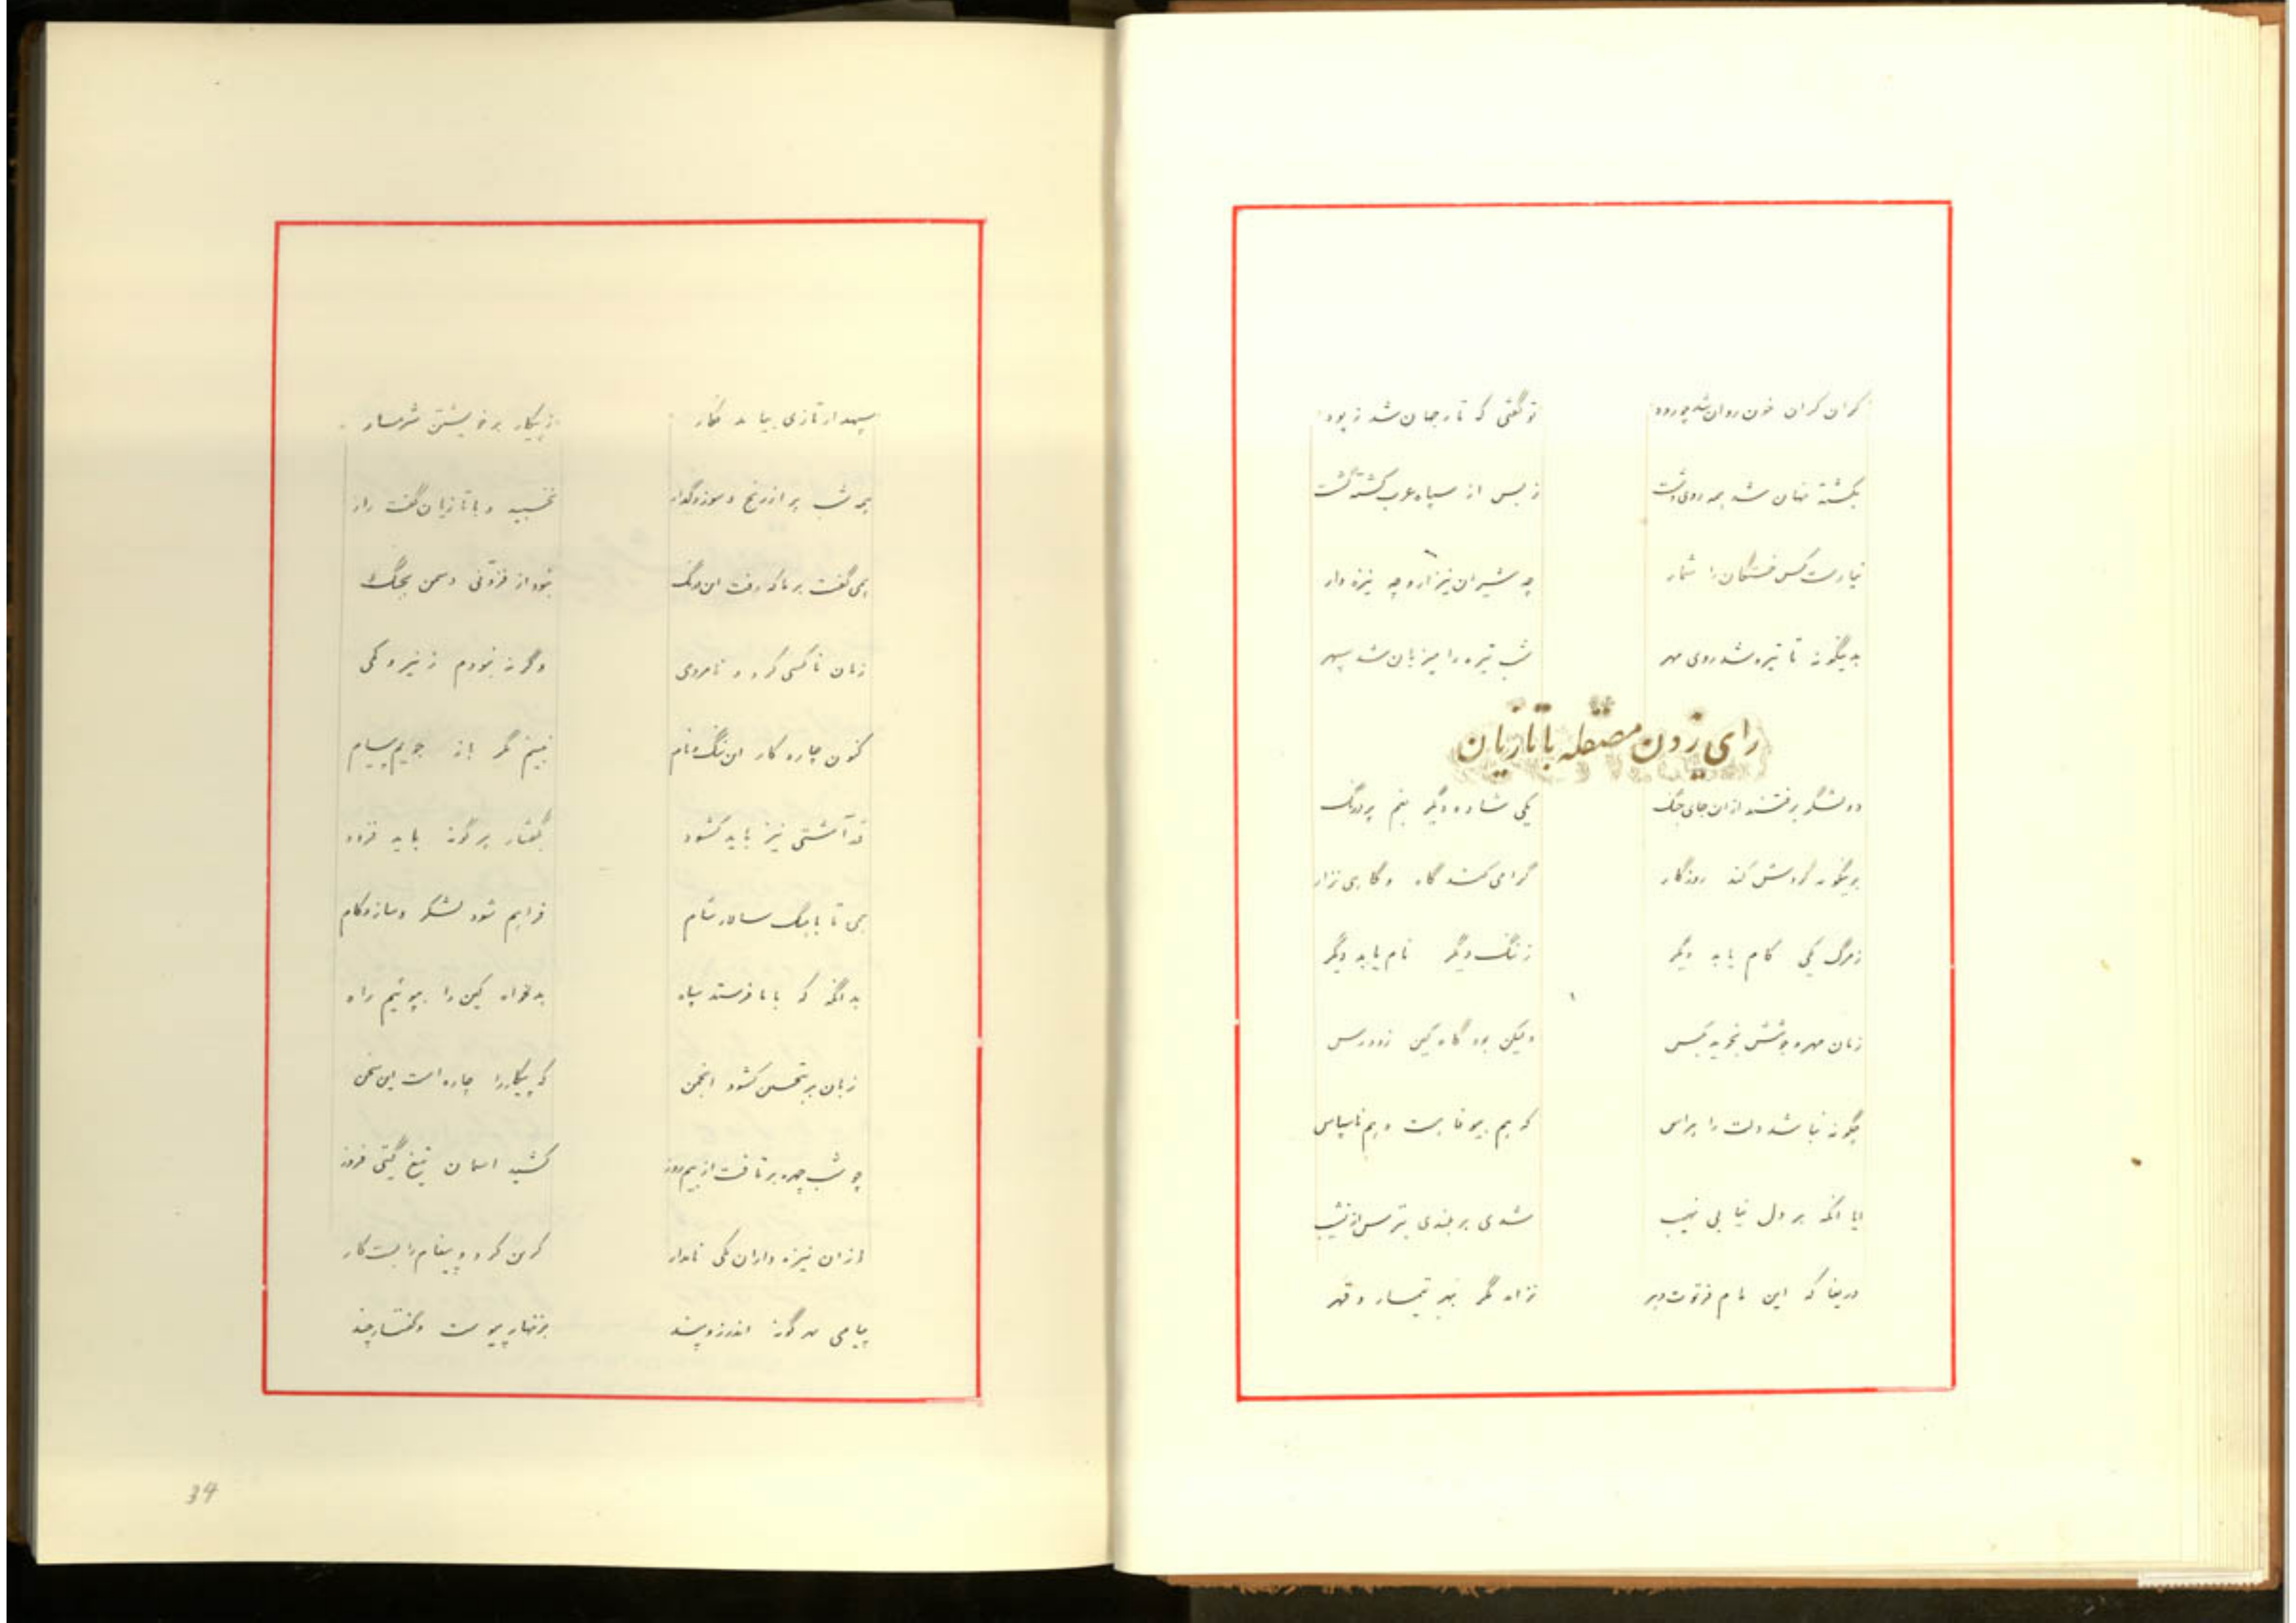 کران کران خون روان شد چو رود تو گفتی که تار جهان شد ز پود
بکشته نهان شد همه روی دشت ز بس از سپاه عرب کشته گشت
نیارست کس خستگان را شمار چه شیران نیزار و چه نیزه دار
بدینگونه تا تیره شد روی مهر شب تیره را میزبان شد سپهر
رای زدن مصقله با تازیان
دو لشگر برفتند ازان جای جنگ یکی شاد و دیگر بغم پر درنگ
برینگونه گردش کند روزگار گرامی کند گاه و گاهی نزار
ز مرگ یکی کام یابد دیگر ز ننگ دیگر نام یابد دیگر
زمان مهره جوشش نجوید بکس ولیکن بود گاه کین زودرس
چگونه نباشد دلت را هراس که هم بیوفا هست و هم ناسپاس
ایا انکه بر دل نیابی نهیب شدی بر بلندی بترس از نشیب
دریغا که این مام فرتوت دهر نزاد مگر بهر تیمار و قهر
سپهدار تازی بیامد فکار ز پیکار بر خویشتن شرمسار
همه شب پر از رنج و سوز و گداز نخسبید و با تازیان گفت راز
همی گفت بر ما که رفت این درنگ نبود از فزونی دشمن بجنگ
زمان ناکسی کرد و نامردمی وگرنه نبودم ز نیرو کمی
کنون چاره کار این ننگ و نام نبینم مگر باز جویم پیام
در آشتی نیز باید گشود بگفتار هر گونه باید فزود
همی تا بابنگ سالار شام فراهم شود لشگر و ساز و کام
بدانگه که باما فرستد سپاه بدلخواه کین را بپوئیم راه
زبان بر تحسین گشود انجمن که پیکار را چاره است این سخن
چو شب چهره بر تافت از بیم روز کشید اسمان تیغ گیتی فروز
ازان نیزه داران یکی نامدار گزین کرد و پیغام را بست کار
پیامی هر گونه اندرز و پند بزنهار پیوست و گفتار چند
34